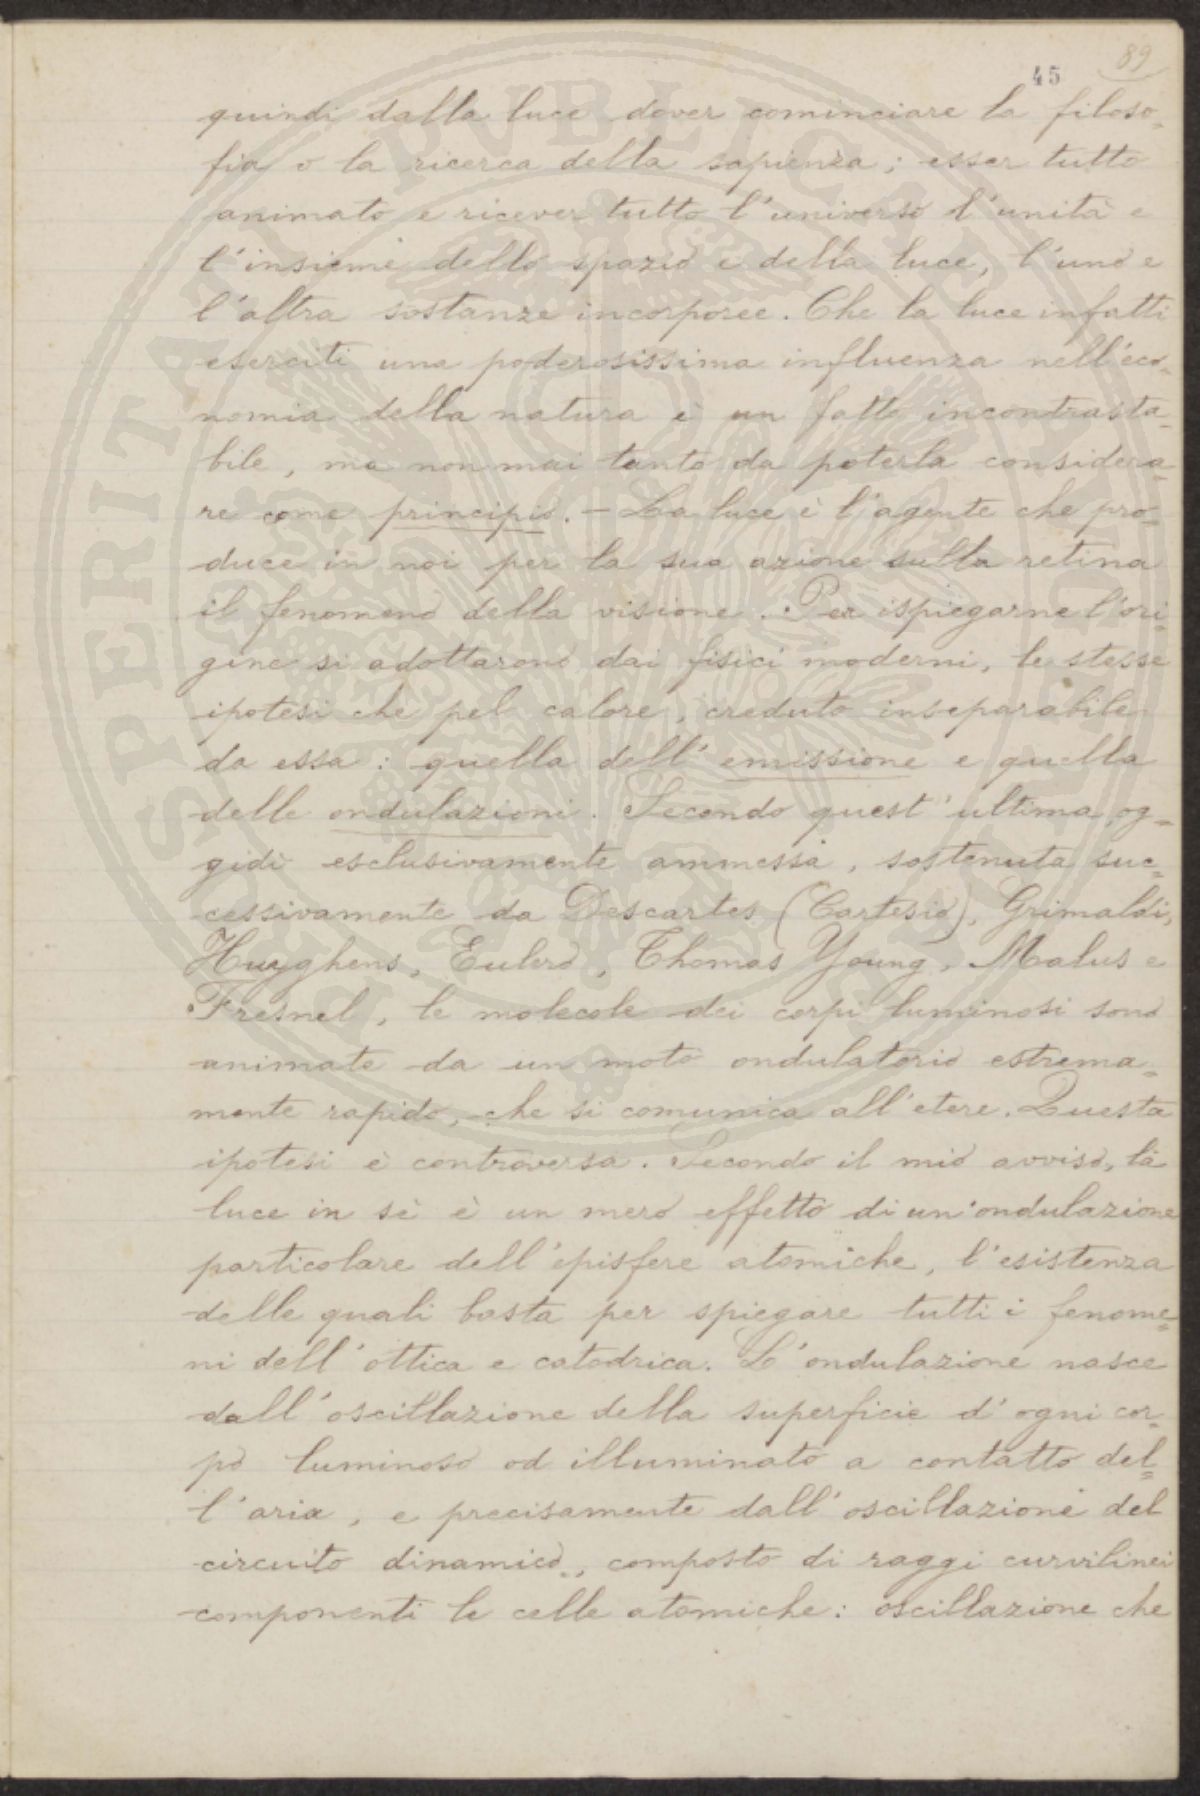 89
45
quindi dalla luce dover cominciare la filoso-
fia o la ricerca della sapienza; esser tutto
animato e ricever tutto l'universo l'unità e
l'insieme dello spazio e della luce, l'uno e
l'altra sostanze incorporee. Che la luce infatti
eserciti una poderosissima influenza nell'eco-
nomia della natura è un fatto incontrasta-
bile, ma non mai tanto da poterla considera-
re come principio. – La luce è l'agente che pro-
duce in noi per la sua azione sulla retina
il fenomeno della visione. Per ispiegarne l'ori-
gine si adottarono dai fisici moderni, le stesse
ipotesi che pel calore, creduto inseparabile
da essa: quella dell'emissione e quella
delle ondulazioni. Secondo quest'ultima, og-
gidì esclusivamente ammessa, sostenuta suc-
cessivamente da Descartes (Cartesio), Grimaldi,
Huyghens, Eulero, Thomas Young, Malus e
Fresnel, le molecole dei corpi luminosi sono
animate da un moto ondulatorio estrema-
mente rapido, che si comunica all'etere. Questa
ipotesi è controversa. Secondo il mio avviso, la
luce in sè è un mero effetto di un'ondulazione
particolare dell'episfere atomiche, l'esistenza
delle quali basta per spiegare tutti i fenome-
ni dell'ottica e catodrica. L'ondulazione nasce
dall'oscillazione della superficie d'ogni cor-
po luminoso od illuminato a contatto del-
l'aria, e precisamente dall'oscillazione del
circuito dinamico, composto di raggi curvilinei
componenti le celle atomiche: oscillazione che
PERITAT PVBLICAE